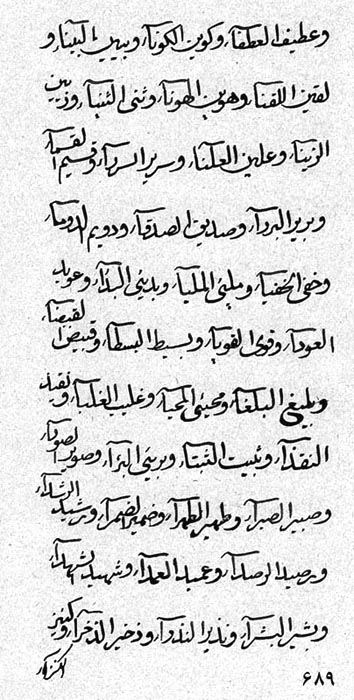 وعطيف العطفآء وكوين الكونآء وبيين البينآء و
لقين اللقنآء وهوين الهونآء وثنى الثنيآء وزين
الزينآء وعلين العلنآء وسرير السررآء وقسيم القسمآء
وبرير البررآء وصديق الصدقآء ودويم الدومآء
وخفى الخفيآء وملئى المليآء وبدئى البدآء وعويد
العودآء وقوى القويآء وبسيط البسطآء وقبيض القبضآء
وبليغ البلغآء ومحيئى المحيآء وغليب الغلبآء ونقيذ
النقذآء وثبيت الثبتآء وبرئى البرآء وصوير الصورآء
وصبير الصبرآء وظهير الظهرآء وضمير الضمرآء ورشيد الرشدآء
ورصيد الرصدآء وعميد العمدآء وشهيد الشهدآء
وبشير البشرآء ونذير النذرآء وذخير الذخرآء وكنيز
الكنزآء
٦٨٩